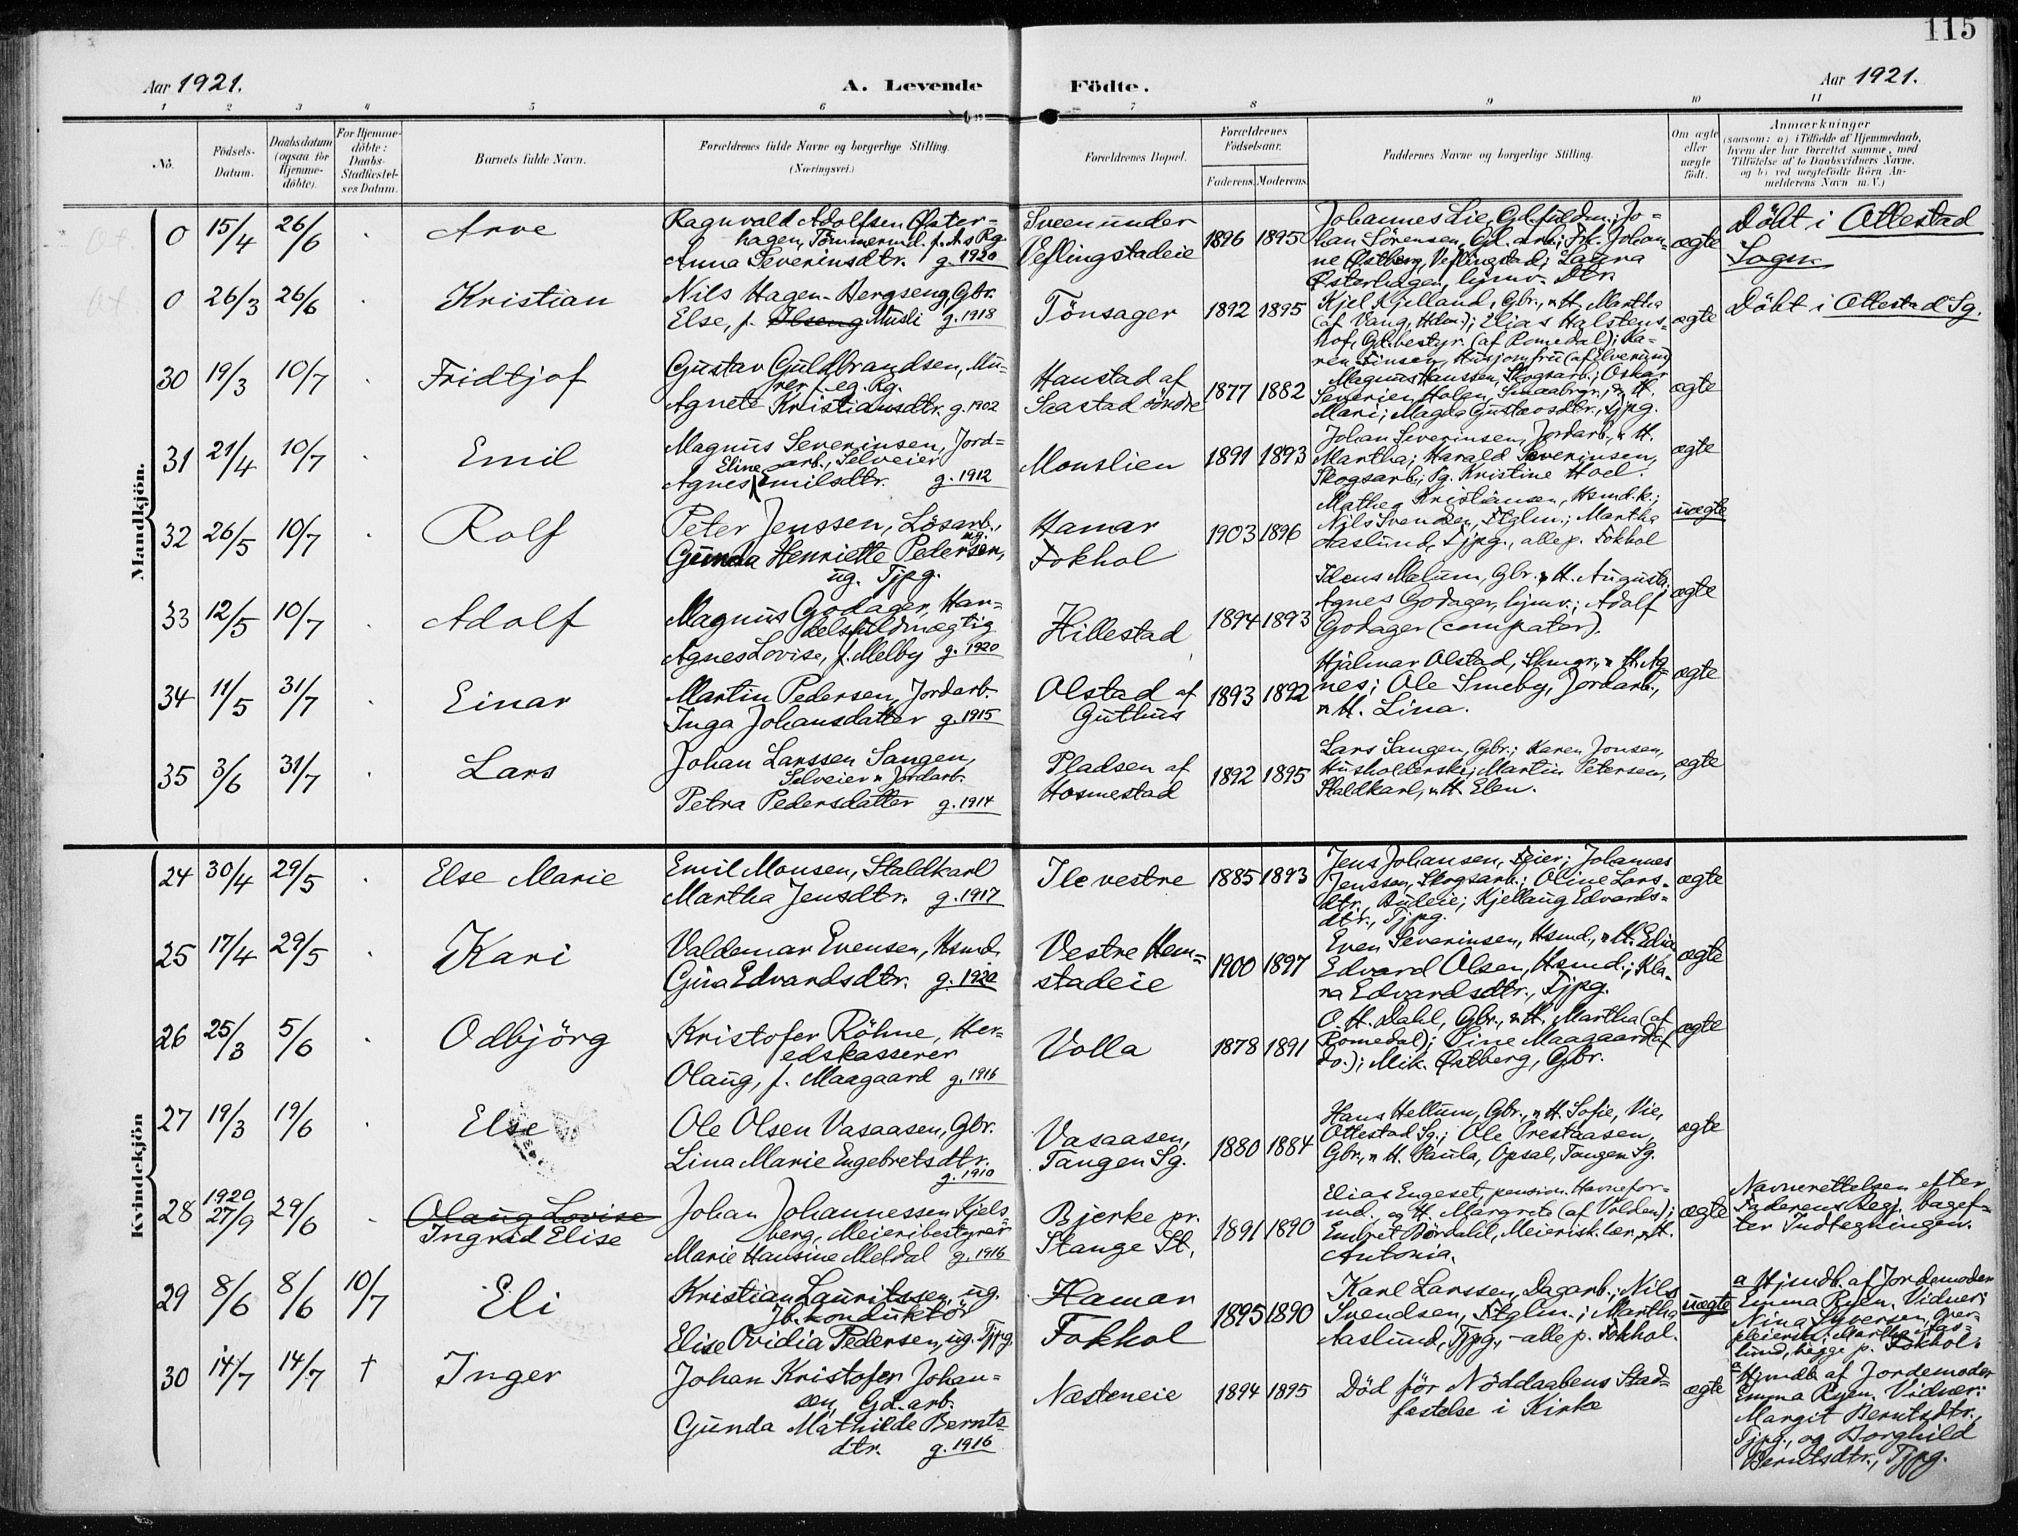 115
Aar 1921. A. Levende Födte. Aar 1921.
1 2 3 4 5 6 7 8 9 10 11
No.
Födsels-
Datum.
Daabsdatum
(ogsaa for
Hjemme-
döbte).
For Hjemme-
döbte:
Daabs-
Stadfæstel-
ses Datum.
Barnets fulde Navn.
Forældrenes fulde Navne og borgerlige Stilling.
(Næringsvei.)
Forældrenes Bopæl.
Forældrenes
Födselsaar.
Faderens. Moderens.
Faddernes Navne og borgerlige Stilling.
Om ægte
eller
uægte
födt.
Anmærkninger
(saasom: a) i Tilfælde af Hjemmedaab,
hvem der har forrettet samme, med
Tilföielse af to Daabsvidners Navne,
og b) ved uægtefödte Börn An-
melderens Navn m. V.)
Mandkjön.
0 15/4 26/6 Arve
Ragnvald Adolfsen Øster-
hagen, Tömmermd. f. A.s Rg.
Anna Severinsdtr. g. 1920
Sveen under
Veflingstadeie
1896 1895
Johannes Lie, Gd. fuldm.; Jo-
han Sörensen, Gd. arb.; Frk. Johan-
ne Østberg, Veflingstad; Laura
Østerhagen, hjmv. Dtr.
ægte
Döbt i Ottestad
Sogn
0 26/3 26/6 Kristian
Nils Hagen-Bergseng, Gbr.
Else, f. Ilseng Musli g. 1918
Tönsager
1892 1895
Kjel Kjelland, Gbr., & H. Martha
(af Vang, Hdm.); Elias Halstens-
hof, Gd. bestyr. (af Romedal); Ka-
ren Finsen, Husjomfru (af Elverum)
ægte
Döbt i Ottestad Sg.
30 19/3 10/7 Fridtjof
Gustav Guldbrandsen, Mu-
rer f. eg. Rg.
Agnete Kristiansdtr. g. 1902
Hanstad af
Saastad söndre
1877 1882
Magnus Hanssen, Skogsarb.; Oskar
Severien Holen, Smaabrgr., & H.
Mari; Magda Gustavsdtr., Tjpg.
ægte
31 21/4 10/7 Emil
Magnus Severinsen, Jord-
arb., Selveier
Eline
Agnes Emilsdtr. g. 1912
Monslien
1891 1893
Johan Severinsen, Jordarb., & H.
Martha; Harald Severinsen,
Skogsarb.; Pg. Kristine Hoel.
ægte
32 26/5 10/7 Rolf
Peter Jenssen, Lösarb.,
ug.
Gunda Henriette Pedersen,
ug. Tjpg.
Hamar
Fokhol
1903 1896
Mathea Kristiansen, Hsmd.k.;
Nils Svendsen, Stglm.; Martha
Aaslund, Tjpg., alle p. Fokhol
uægte
33 12/5 10/7 Adolf
Magnus Godager, Han-
delsfuldmægtig
Agnes Lovise, f. Melby g. 1920
Hillestad
1894 1893
Idens Mælum, Gbr. & H. Augusta;
Agnes Godager, hjmv.; Adolf
Godager (compater).
ægte
34 11/5 31/7 Einar
Martin Pedersen, Jordarb.
Inga Johansdatter g. 1915
Olstad af
Guthus
1893 1892
Hjalmar Olstad, Skmgr., & H. Ag-
nes; Ole Smeby, Jordarb.,
& H. Lina.
ægte
35 3/6 31/7 Lars
Johan Larssen Sangen,
Selveier & Jordarb.
Petra Pedersdatter g. 1914
Pladsen af
Hosmestad
1892 1895
Lars Sangen, Gbr.; Karen Jonsen,
Husholderske; Martin Petersen,
Staldkarl, & H. Elen.
ægte
Kvindekjön
24 30/4 29/5 Else Marie
Emil Monsen, Staldkarl
Martha Jensdtr. g. 1917
Ile vestre
1885 1893
Jens Johansen, Feier; Johannes
Jenssen, Skogsarb.; Oline Lars-
dtr., Huleie; Kjellaug Edvards-
dtr., Tjpg.
ægte
25 17/4 29/5 Kari
Valdemar Evensen, Hsmd.
Gina Edvardsdtr. g. 1920
Vestre Hem-
stadeie
1900 1897
Even Severinsen, Hsmd., & H. Edia
Edvard Olsen, Hsmd.; Kla-
ra Edvardsdtr., Tjpg.
ægte
26 25/3 5/6 Odbjörg
Kristofer Röhne, Her-
edskasserer
Olaug, f. Maagaard g. 1916
Volla
1878 1891
O. H. Dahl, Gbr., & H. Martha (af
Romedal); Sine Maagaard (af
do.); Mik. Østberg, Gbr.
ægte
27 19/3 19/6 Else
Ole Olsen Vasaasen, Gbr.
Lina Marie Engebretsdtr.
g. 1910
Vasaasen,
Tangen Sg.
1880 1884
Hans Hellum, Gbr., & H. Sofie, Vie,
Ottestad Sg.; Ole Prestaasen,
Gbr., & H. Paula, Opsal, Tangen Sg.
ægte
28 1920 27/9 29/6 Olaug Lovise
Ingrid Elise
Johan Johannessen Kjels-
berg, Meieribestyrer
Marie Hansine Meldal g. 1916
Bjerke pr.
Stange St.
1891 1890
Elias Engeset, pension. Havnefor-
md. og H. Margrete (af Volden);
Embret Dördahl, Meierisk. lær., & H.
Antonia.
ægte
Navnerettelsen efter
Faderens Begj. bagef-
ter Indtegningen.
29 8/6 8/6 10/7 Eli
Kristian Lauritssen, ug.
Jb. konduktör
Elise Ovidia Pedersen, ug. Tjpg.
Hamar
Fokhol
1895 1890
Karl Larssen, Dagarb.; Nils
Svendsen, Stglm.; Martha
Aaslund, Tjpg., - alle p. Fokhol.
uægte
a Hjmdb. af Jordemoder
Emma Ryen. Vidner:
Nina Syversen,
Martha Aas-
lund, begge p. Fokhol.
30 14/7 14/7 † Inger
Johan Kristofer Johan-
sen, Gd. arb.
Gunda Mathilde Bernts-
dtr. g. 1916
Næsteneie
1894 1895
Död för Nöddaabens Stad-
fæstelse i Kirke
ægte
a Hjmdb. af Jordemoder
Emma Ryen. Vidner:
Margit Berntsdtr.,
Tjpg., og Borghild
Berntsdtr., Tjpg.